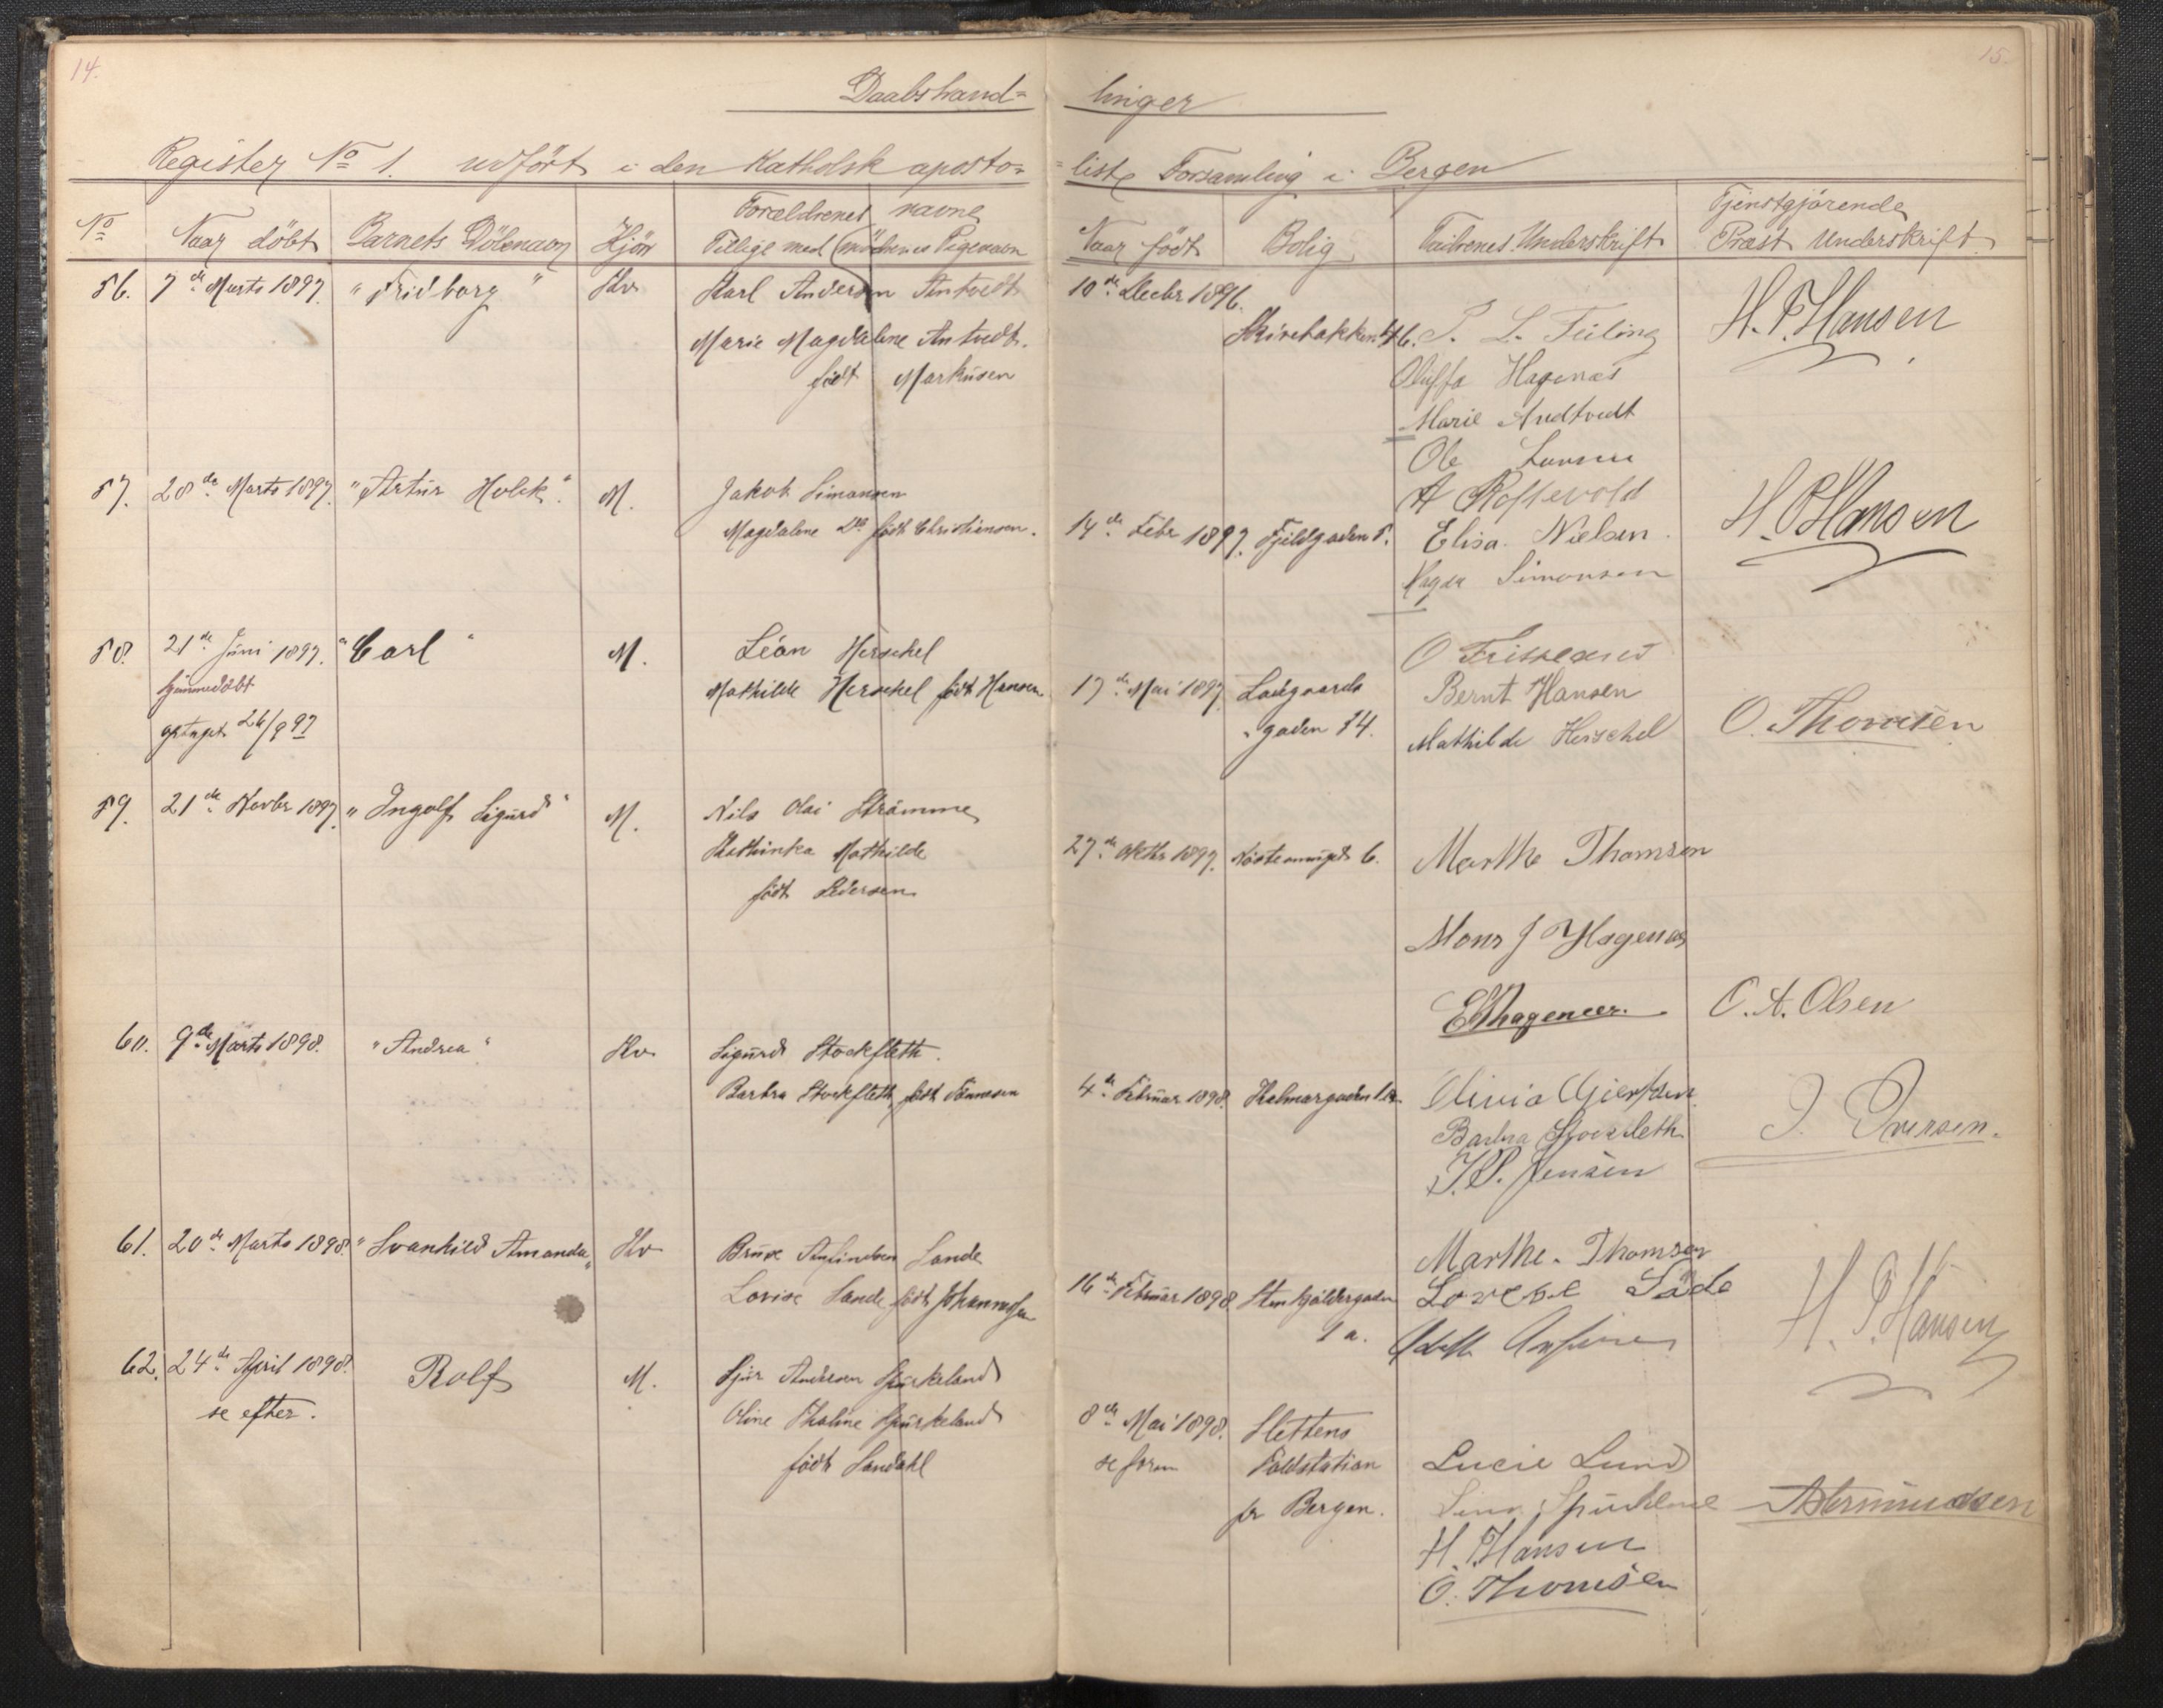 14.
15.
Daabshand=
linger
Register No 1. udført i den Katholsk aposto=
=liske Forsamling i Bergen
No
Naar döbt
Barnets Döbenavn
Kjön
Forældrenes navne
Tillige med Moderens Pigenavn
Naar födt
Bolig
Faddrenes Underskrift
Tjenstgjörende
Præst Underskrift
56. 7de Marts 1897. "Fridborg" Kv. Karl Andersen Antvedt
Marie Magdalene Antvedt.
födt Markusen
10de Decbr 1896.
Skivebakken 46.
P. L. Feiling
Oluffa Hagenæs
Marie Andtvedt
H. P. Hansen
57. 28de Marts 1897. "Artur Holck". M. Jakob Simonsen
Magdalene Do född Christiansen.
14de Febr 1897. Fjeldgaden 5.
Ole Larsen
A Roftevold
Elisa Nielsen.
Magda Simonsen
H. P. Hansen
58. 21de Juni 1897. "Carl" M. Léon Herschel
hjemmedöbt
Mathilde Herschel född Hansen
optaget 26/9 97
17de Mai 1897. Ladegaards
gaden 34.
Bernt Hansen
Mathilde Herschel
O. Thomsen
59. 21de Novbr 1897. "Ingolf Sigurd" M. Nils Olai Strömme
Kathinka Mathilde
födt Pedersen
27de Oktbr 1897. 6.
Marthe Thomsen
Mons J Hagenæs
O. A. Olsen
60. 9de Marts 1898. "Andrea" Kv. Sigurd Stockfleth.
Barbra Stockfleth, födt Tönnesen
4de Februar 1898. Kalmargaden
Olivia
Barbra Stockfleth
J. P. Jensen
J. Iversen.
61. 20de Marts 1898. "Svanhild Amanda" Kv. Sande
Lovise Sande, födt Johannesen
16de Februar 1898. Stenkjældergaden
1 a.
Marthe. Thomsen
Lovise
H. P. Hansen
62. 24de April 1898. Rolf M. Sjur Andersen Spurkeland
se efter.
Oline Thaline Spurkeland
födt Sandahl
8de Mai 1898. Slettens
se frem Toldstation
pr Bergen.
Lucie Lund
H. P. Hansen
O. Thomsen
Asbrmundsen